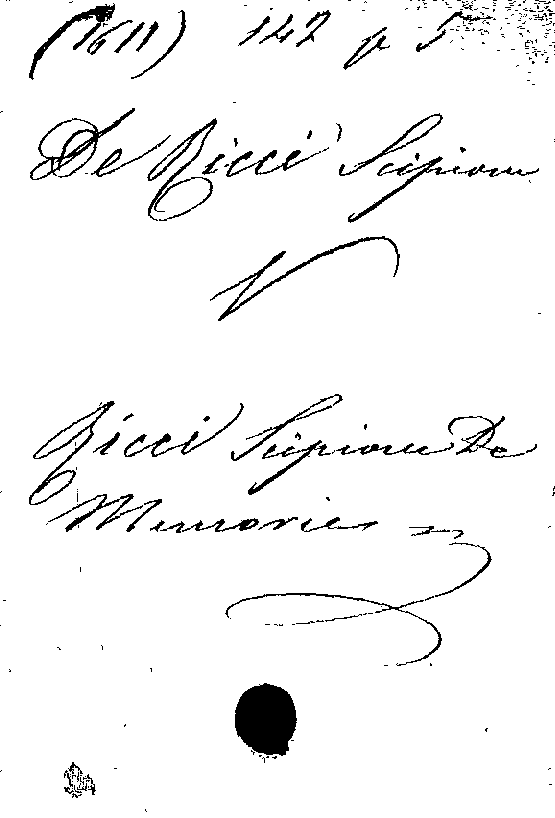 (1611) 142 p 5
De Ricci Scipione
V
Ricci Scipione De
Memorie =